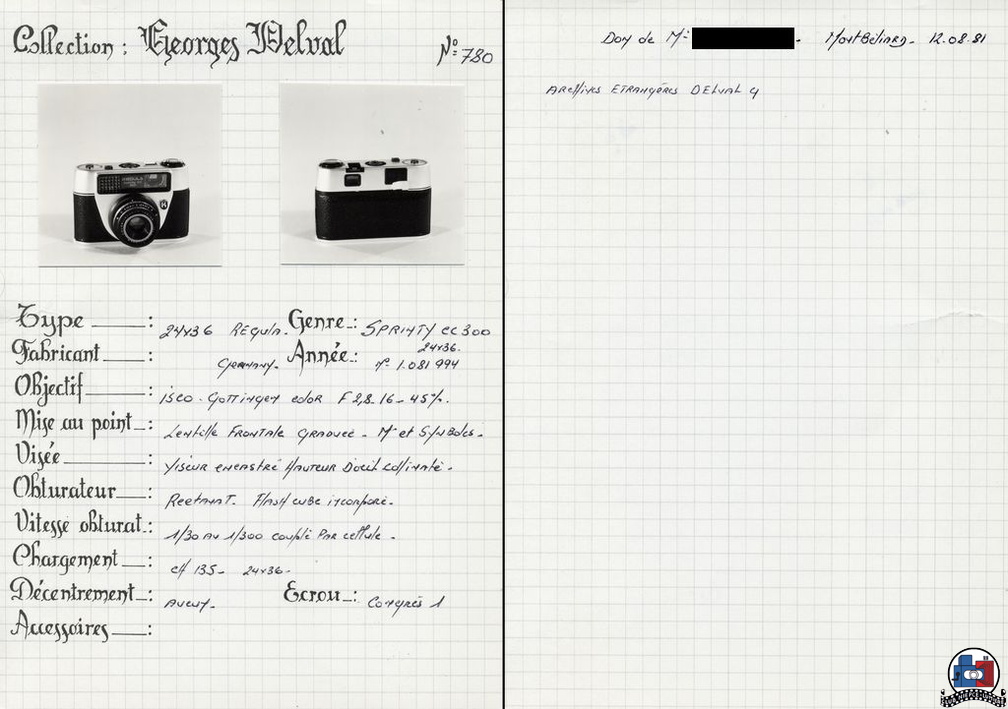 Collection : Georges Delval
N°: 780
Type : 24x36 REGULA. Genre : SPRINTY CC 300
24x36.
Fabricant : Germany. Année : n° 1.081 994
Objectif : isco. Gottingen color F 2,8_16_45%.
Mise au point : Lentille Frontale Graduée - M et Symboles.
Visée : Viseur encastré Hauteur D'oeil collimaté.
Obturateur : Flash cube incorporé.
Vitesse obturat. : 1/30 AU 1/300 couplé Par cellule.
Chargement : CH 135- 24x36-
Décentrement : Aucun. Ecrou : Congrès 1
Accessoires :
Don de Mr - Montbéliard - 12.08.81
Archives Etrangères DELVAL 4